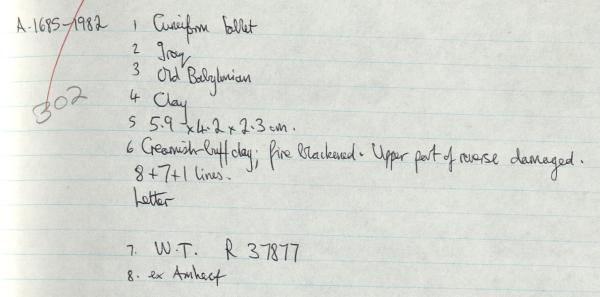 A.1685-1982 1 Cuneiform tablet
2 Iraq
3 Old Babylonian
302
4 Clay
5 5.9 x 4.2 x 2.3 cm.
6 Creamish-buff clay; fire blackened. Upper part of reverse damaged.
8+7+1 lines.
Letter
7. W.T. R 37877
8. ex Amherst